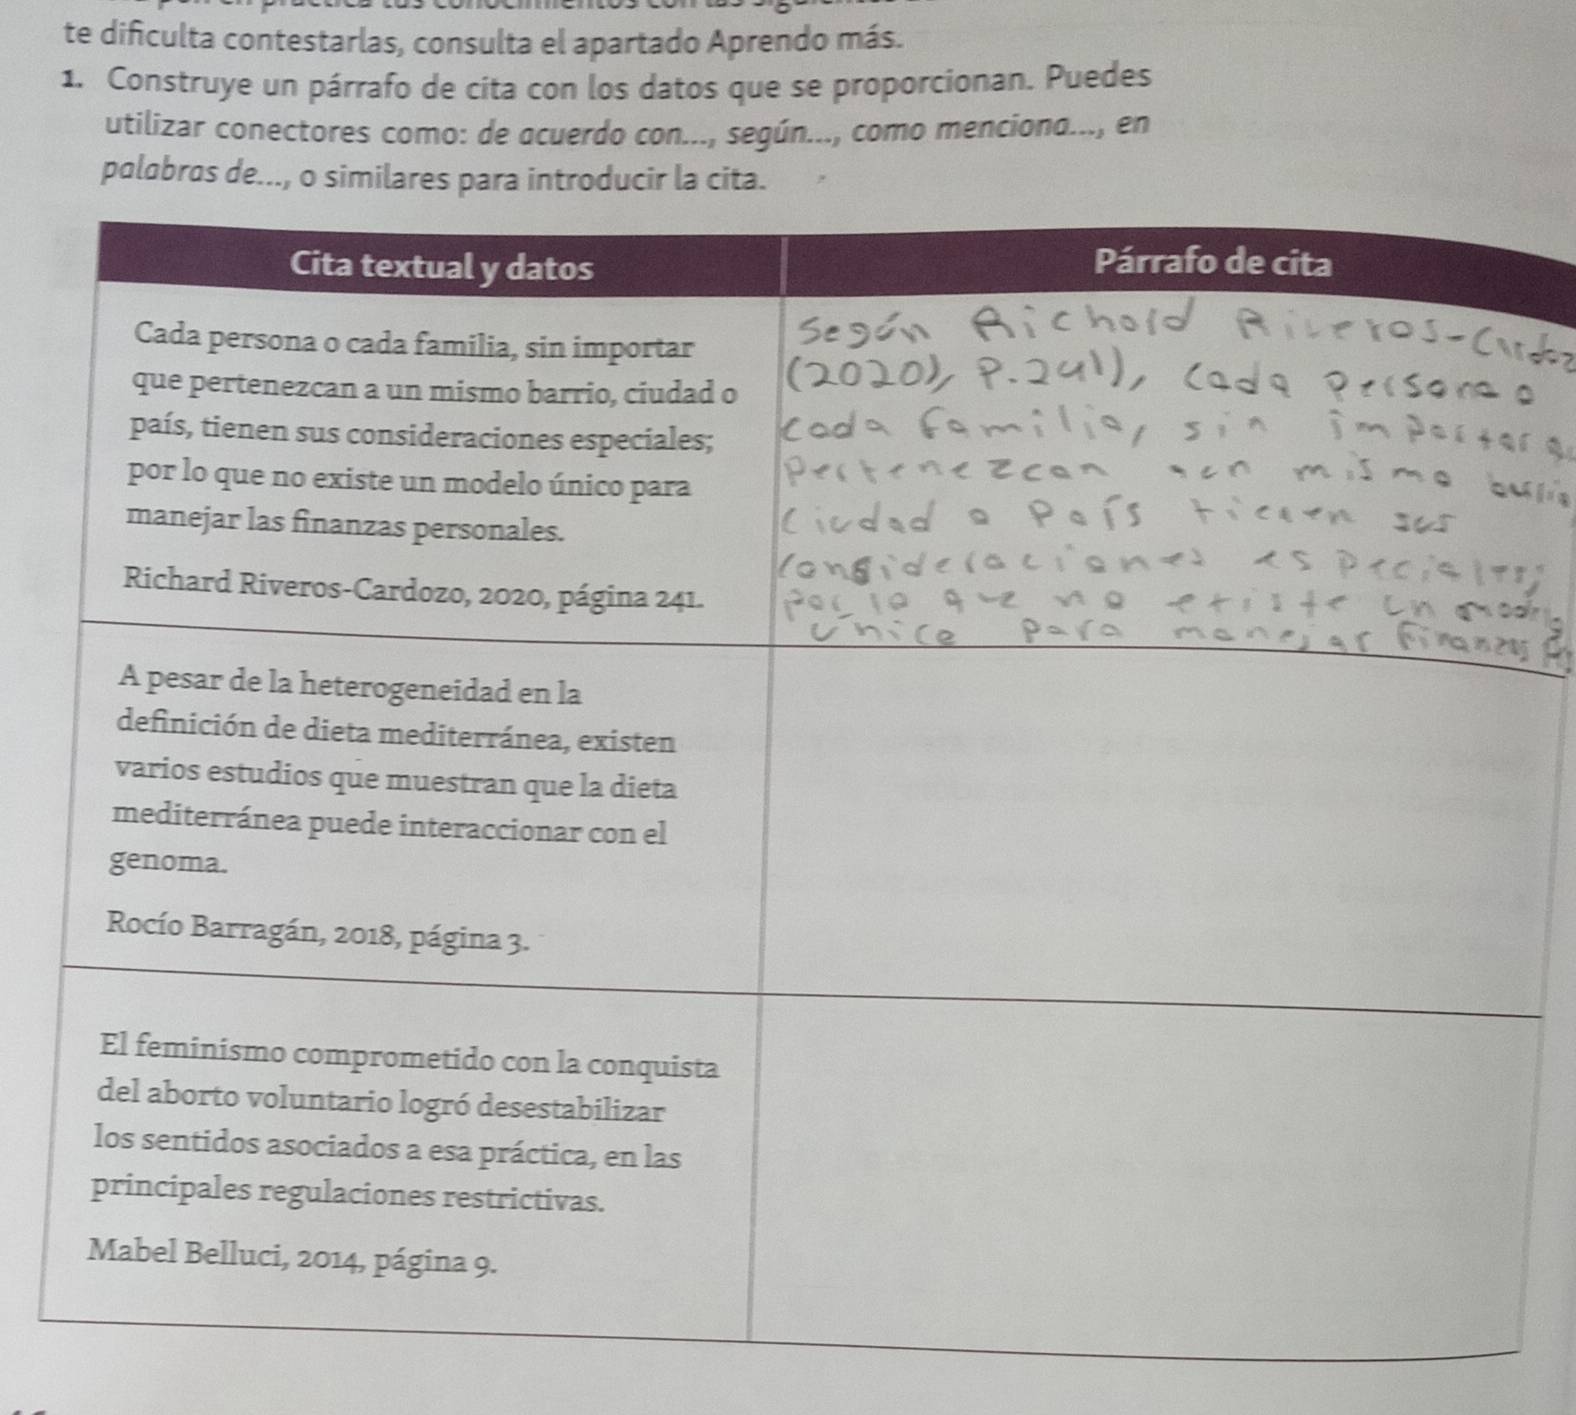 te dificulta contestarlas, consulta el apartado Aprendo más.
1. Construye un párrafo de cita con los datos que se proporcionan. Puedes
utilizar conectores como: de acuerdo con..., según..., como menciona..., en
palabras de..., o similares para introducir la cita.
Cita textual y datos
Párrafo de cita
Cada persona o cada familia, sin importar
que pertenezcan a un mismo barrio, ciudad o
país, tienen sus consideraciones especiales;
por lo que no existe un modelo único para
manejar las finanzas personales.
Richard Riveros-Cardozo, 2020, página 241.
Según Richard Riveros-Cardoz
(2020), P.241), cada persona o
cada familia, sin importar q
pertenezcan a un mismo barrio
Ciudad o País tienen sus
Consideraciones especiales;
por lo que no existe un modelo
único para manejar Finanzas
A pesar de la heterogeneidad en la
definición de dieta mediterránea, existen
varios estudios que muestran que la dieta
mediterránea puede interaccionar con el
genoma.
Rocío Barragán, 2018, página 3.
El feminismo comprometido con la conquista
del aborto voluntario logró desestabilizar
los sentidos asociados a esa práctica, en las
principales regulaciones restrictivas.
Mabel Belluci, 2014, página 9.